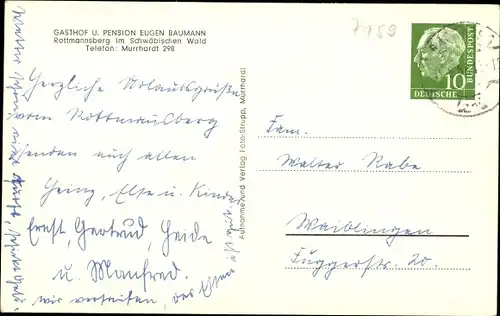 GASTHOF U. PENSION EUGEN BAUMANN
Rottmannsberg im Schwäbischen Wald
Telefon: Murrhardt 298
7159
10
DEUTSCHE
BUNDESPOST
Herzliche Urlaubsgrüße
vom Rottmansberg
senden euch allen
Heinz, Else u. Kinder
Ernst, Gertrud, Heide
u. Manfred.
wir vertreiben, das Essen
Wetter schön,
Aufnahme und Verlag Foto-Strupp, Murrhardt
Fam.
Walter Rabe
Waiblingen
Fuggerstr. 20.